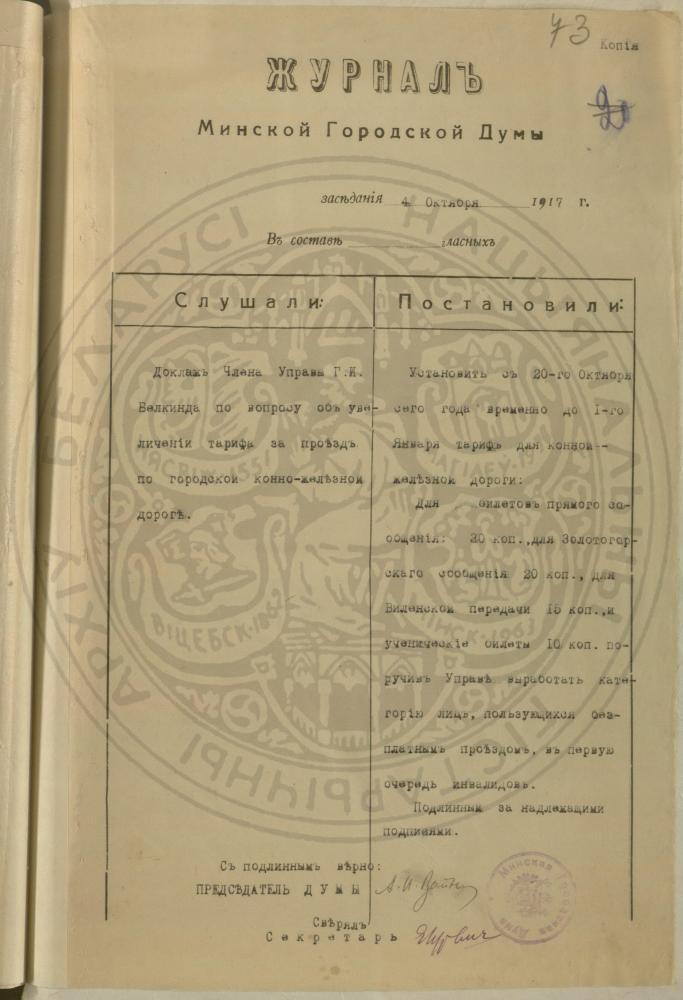 73
Копія
ЖУРНАЛЪ
Минской Городской Думы
засѣданія 4 Октября 1917 г.
Въ составѣ гласныхъ
Слушали:
Докладъ Члена Управы Г.И.
Белкинда по вопросу объ уве-
личеніи тарифа за проѣздъ
по городской конно-желѣзной
дорогѣ.
Постановили:
Установить съ 20-го Октября
сего года временно до I-го
Января тарифъ для конной-
желѣзной дороги:
Для билетовъ прямого со-
общенія: 30 коп.,для Золотогор-
скаго сообщенія 20 коп., для
Виленской передачи 15 коп.,и
ученическіе билеты 10 коп. по-
ручивъ Управѣ выработать кате-
горію лицъ, пользующихся без-
платнымъ проѣздомъ, въ первую
очередь инвалидовъ.
Подлинный за надлежащими
подписями.
Съ подлиннымъ вѣрно:
ПРЕДСѢДАТЕЛЬ ДУМЫ
Свѣрялъ
Секретарь
Минская Городская Дума
НАЦЫЯНАЛЬНЫ ГІСТАРЫЧНЫ АРХІЎ БЕЛАРУСІ
ВІЦЕБСК·1862